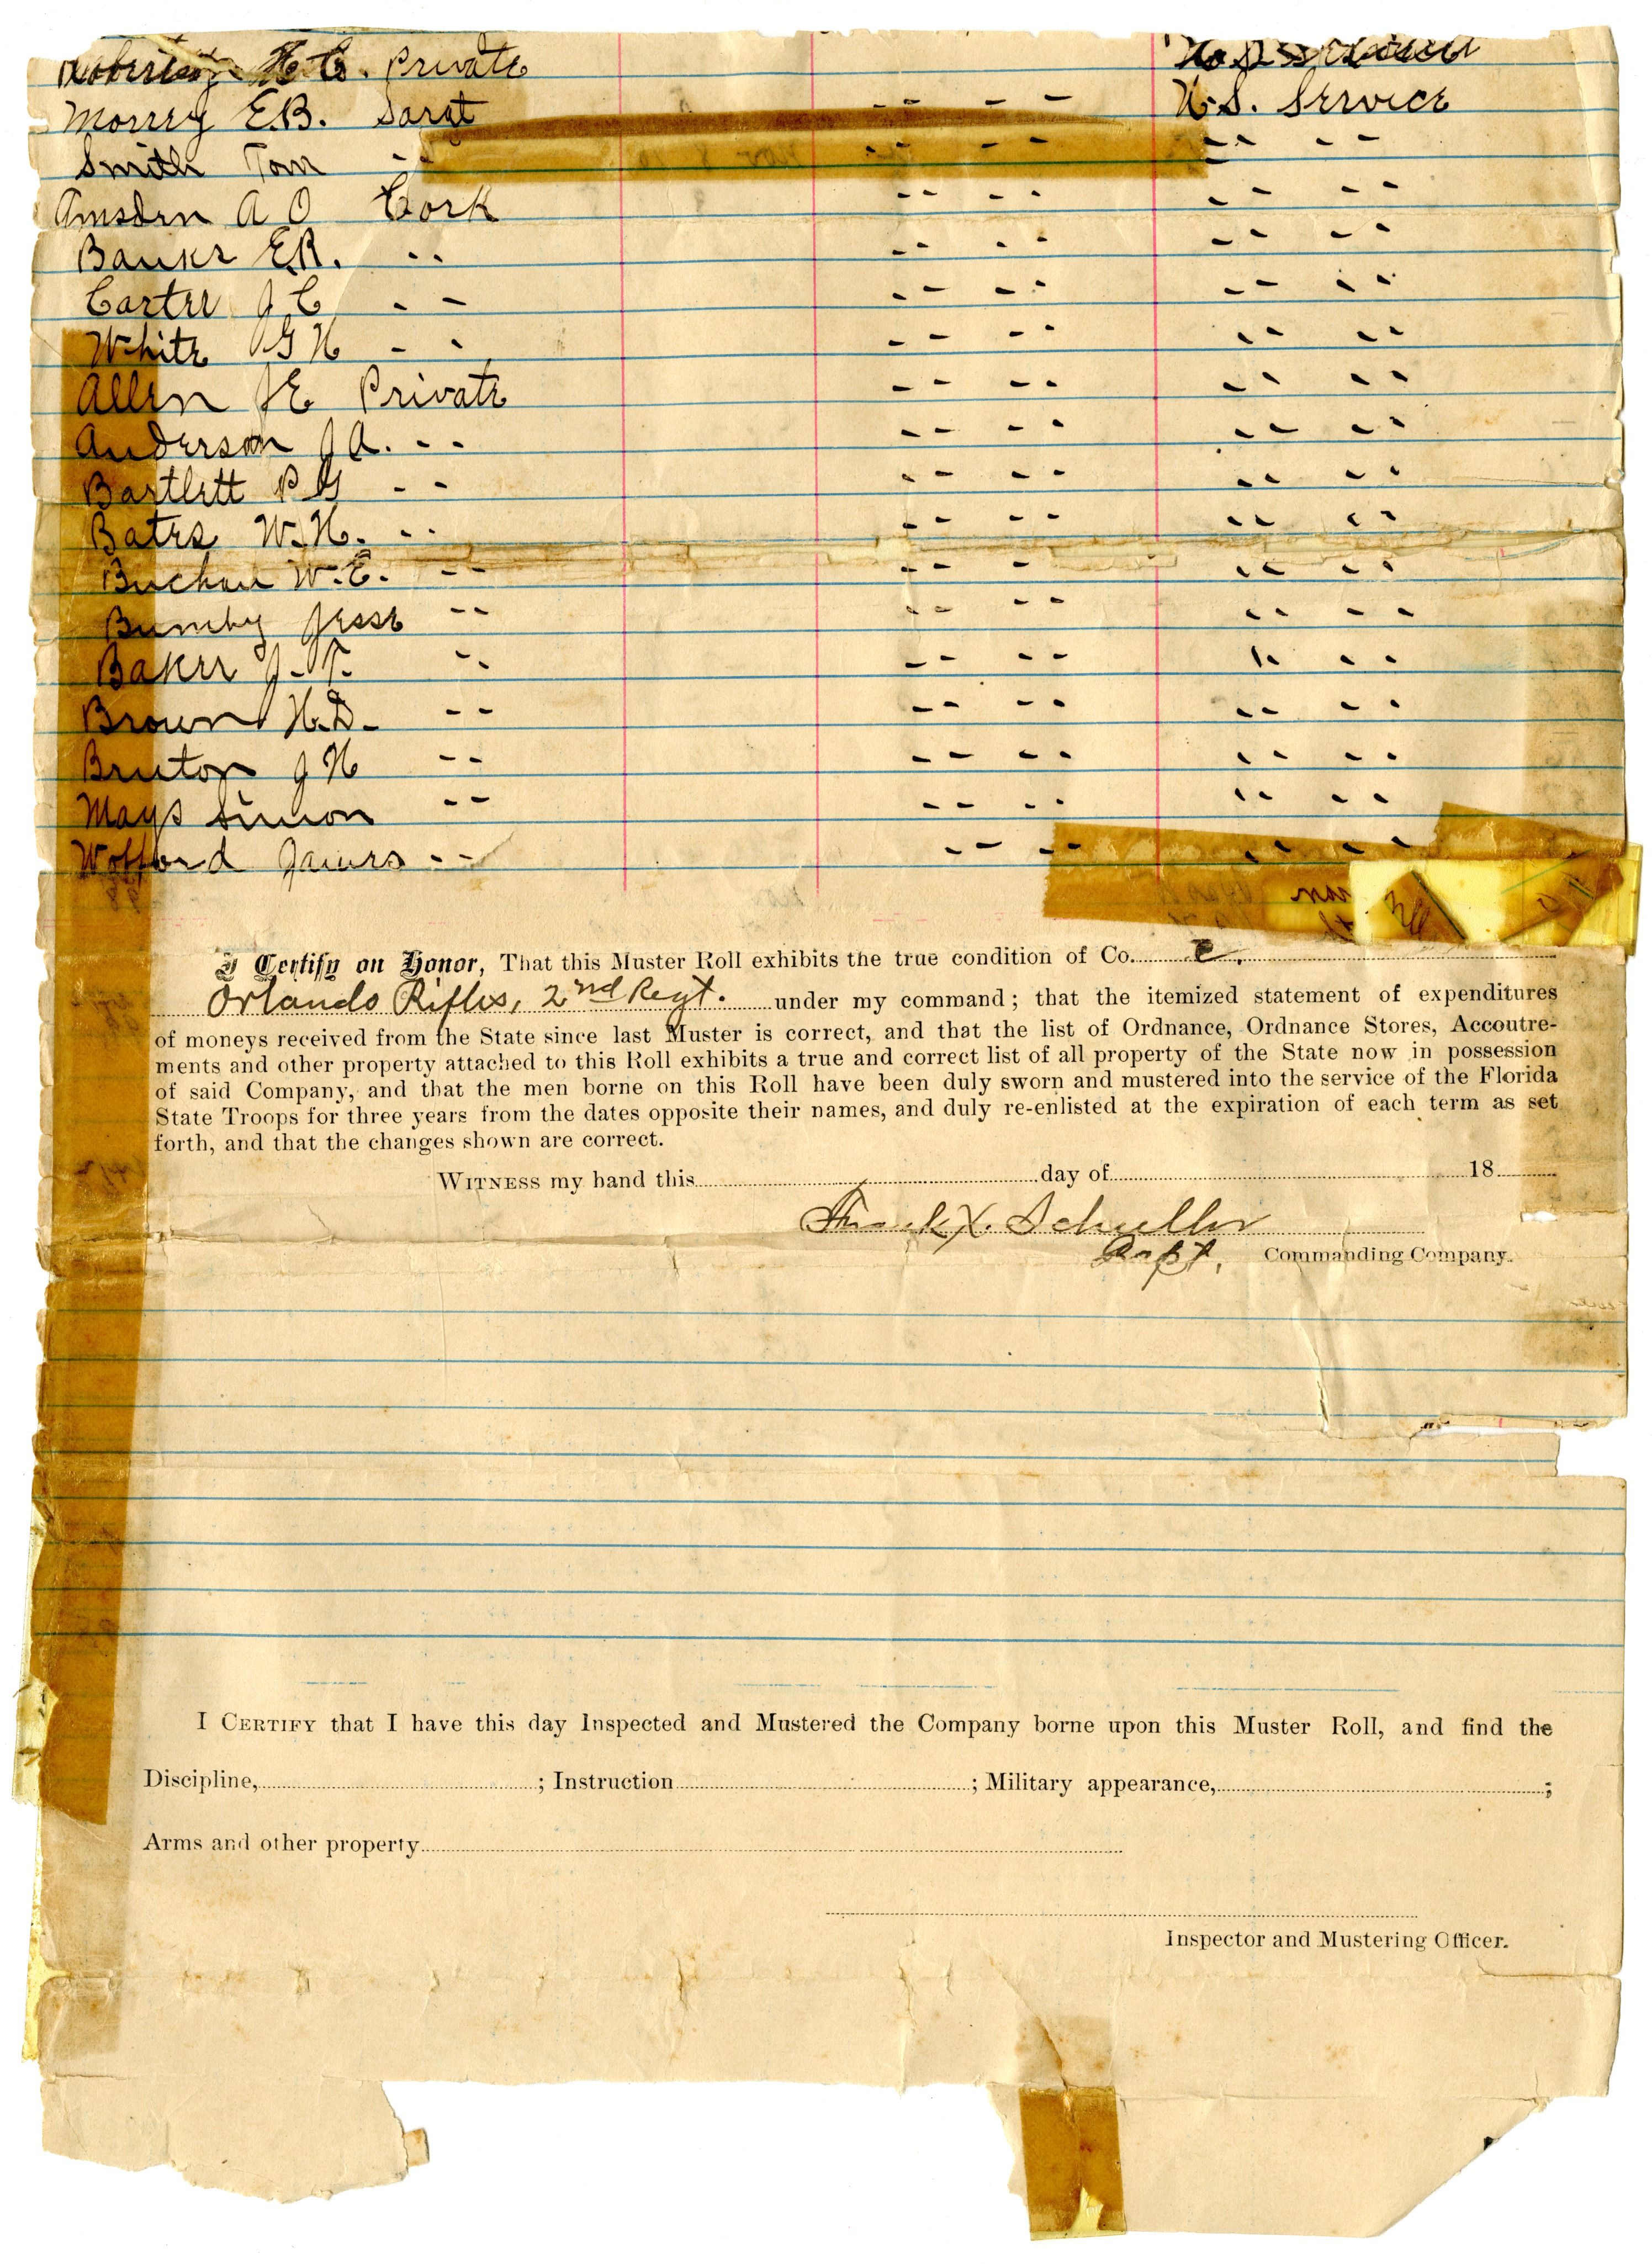 H C. Private
Morrey E.B. Sargt -- -- U.S. Service
Smith Tom -- -- -- -- --
Amsden A O Cork -- -- -- --
Banks E.R. -- -- -- -- --
Carter J C -- -- -- -- --
White G H -- -- -- -- --
Allen J E Private -- -- -- --
Anderson J A. -- -- -- -- --
Bartlett P G -- -- -- -- --
Bates W.H. -- -- -- -- --
Buchan W.E. -- -- - -- --
Bumby Jesse -- -- -- -- --
Baker J.T. -- -- -- -- --
Brown H.D. -- -- -- -- --
Bruton J H -- -- -- -- --
Mays Simon -- -- -- -- --
Wofford James -- -- -- -- --
I Certify on Honor, That this Muster Roll exhibits the true condition of Co. C.
Orlando Rifles, 2nd Regt. under my command; that the itemized statement of expenditures
of moneys received from the State since last Muster is correct, and that the list of Ordnance, Ordnance Stores, Accoutre-
ments and other property attached to this Roll exhibits a true and correct list of all property of the State now in possession
of said Company, and that the men borne on this Roll have been duly sworn and mustered into the service of the Florida
State Troops for three years from the dates opposite their names, and duly re-enlisted at the expiration of each term as set
forth, and that the changes shown are correct.
WITNESS my hand this day of 18
Frank X. Schuller
Capt. Commanding Company.
I CERTIFY that I have this day Inspected and Mustered the Company borne upon this Muster Roll, and find the
Discipline, ; Instruction ; Military appearance, ;
Arms and other property
Inspector and Mustering Officer.